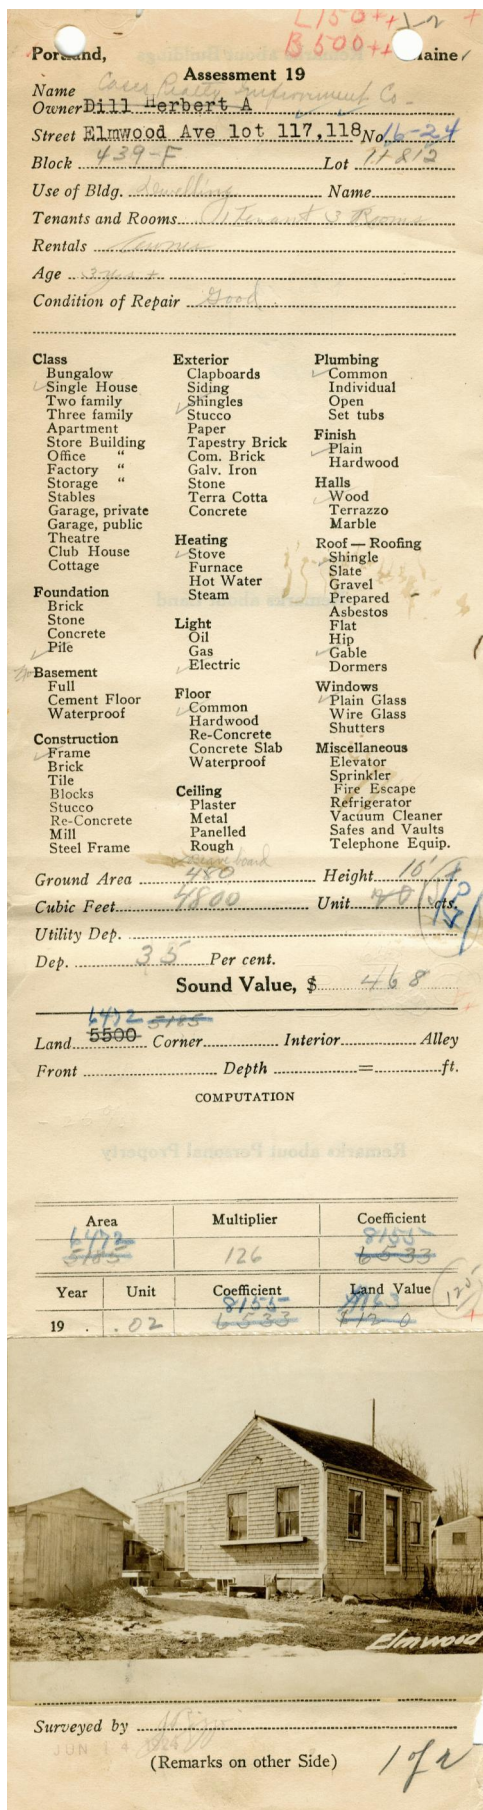 L 150 ++
B 500 ++
Portland, Maine
Assessment 19
Name Realty Improvement Co
Owner Dill Herbert A
Street Elmwood Ave lot 117,118 No 16-24
Block 439-F Lot 11 & 12
Use of Bldg. Dwelling Name
Tenants and Rooms 1 Tenant 3 Rooms
Rentals
Age 3 yrs +
Condition of Repair Good
Class
Bungalow
Single House
Two family
Three family
Apartment
Store Building
Office "
Factory "
Storage "
Stables
Garage, private
Garage, public
Theatre
Club House
Cottage
Foundation
Brick
Stone
Concrete
Pile
no Basement
Full
Cement Floor
Waterproof
Construction
Frame
Brick
Tile
Blocks
Stucco
Re-Concrete
Mill
Steel Frame
Exterior
Clapboards
Siding
Shingles
Stucco
Paper
Tapestry Brick
Com. Brick
Galv. Iron
Stone
Terra Cotta
Concrete
Heating
Stove
Furnace
Hot Water
Steam
Light
Oil
Gas
Electric
Floor
Common
Hardwood
Re-Concrete
Concrete Slab
Waterproof
Ceiling
Plaster
Metal
Panelled
Rough
board
Plumbing
Common
Individual
Open
Set tubs
Finish
Plain
Hardwood
Halls
Wood
Terrazzo
Marble
Roof — Roofing
Shingle
Slate
Gravel
Prepared
Asbestos
Flat
Hip
Gable
Dormers
Windows
Plain Glass
Wire Glass
Shutters
Miscellaneous
Elevator
Sprinkler
Fire Escape
Refrigerator
Vacuum Cleaner
Safes and Vaults
Telephone Equip.
Ground Area 480 Height 10'
Cubic Feet 4800 Unit 20 cts.
Utility Dep.
Dep. 35 Per cent.
Sound Value, $ 468
6472 5185
Land 5500 Corner Interior Alley
Front Depth = ft.
COMPUTATION
Area Multiplier Coefficient
6472 8155
5185 126 6533
Year Unit Coefficient Land Value
8155 $163 125
19 . .02 6533 $120
Elmwood
Surveyed by
JUN 14 1924
(Remarks on other Side)
1 of 2